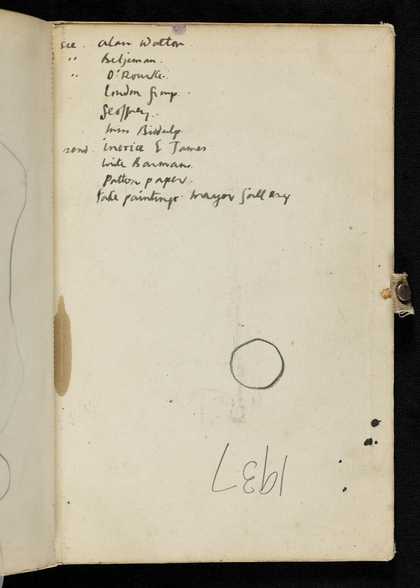 see. Alan Walton
" Betjeman.
" O'Rourke.
London Group.
Geoffrey.
Miss Biddulp
send. invoice E James
write Barman.
Patton paper.
take paintings Mayor Gallery
1937